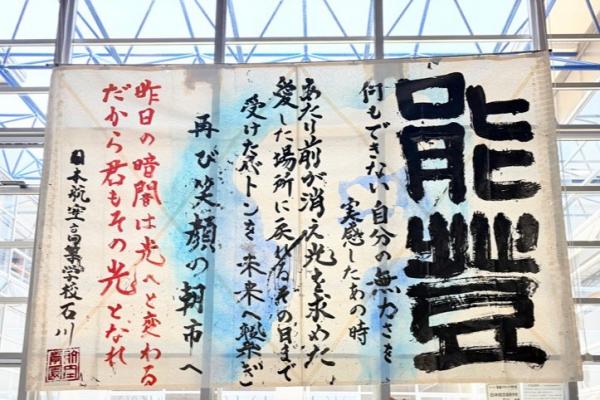 能登
何もできない自分の無力さを
実感したあの時
あたり前が消え光を求めた
愛した場所に戻れるその日まで
受けたバトンを未来へ繋ぎ
再び笑顔の朝市へ
昨日の暗闇は光へと変わる
だから君もその光となれ
日本航空高等学校石川